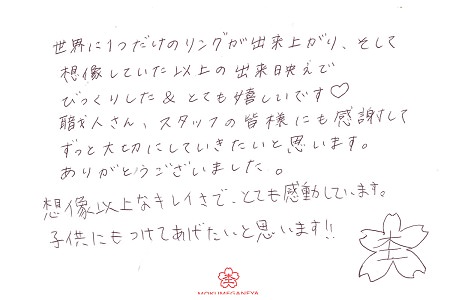 世界に1つだけのリングが出来上がり、そして
想像していた以上の出来映えで
びっくりした & とても嬉しいです♡
職人さん、スタッフの皆様にも感謝して
ずっと大切にしていきたいと思います。
ありがとうございました。
想像以上なキレイさで、とても感動しています。
子供にもつけてあげたいと思います!!
MOKUMEGANEYA